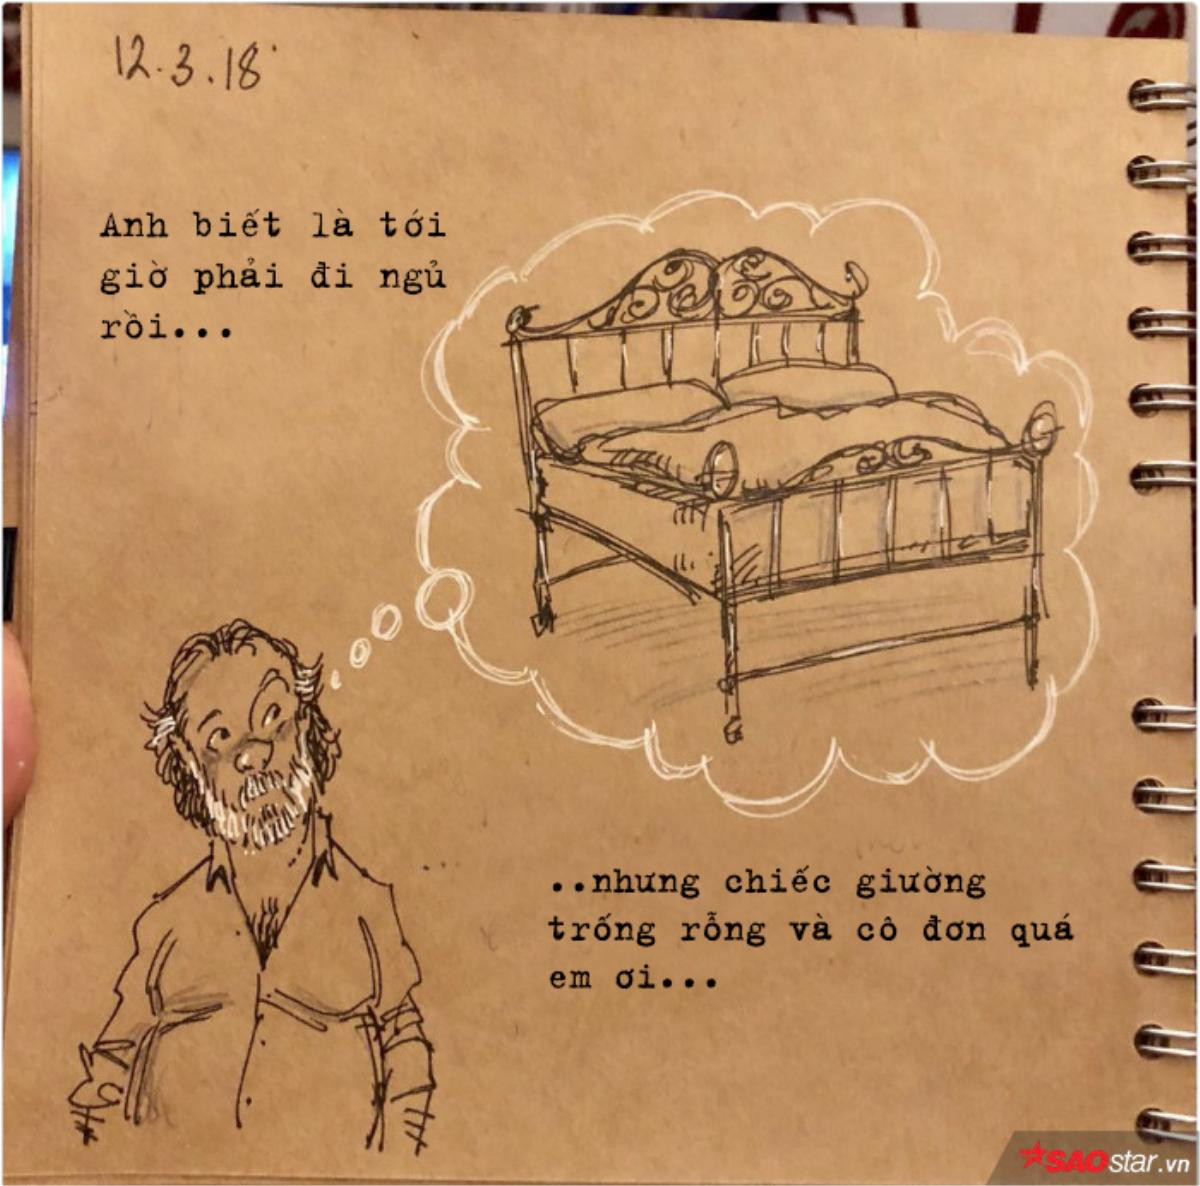 12.3.18
Anh biết là tới
giờ phải đi ngủ
rồi...
..nhưng chiếc giường
trống rỗng và cô đơn quá
em ơi...
SAOstar.vn